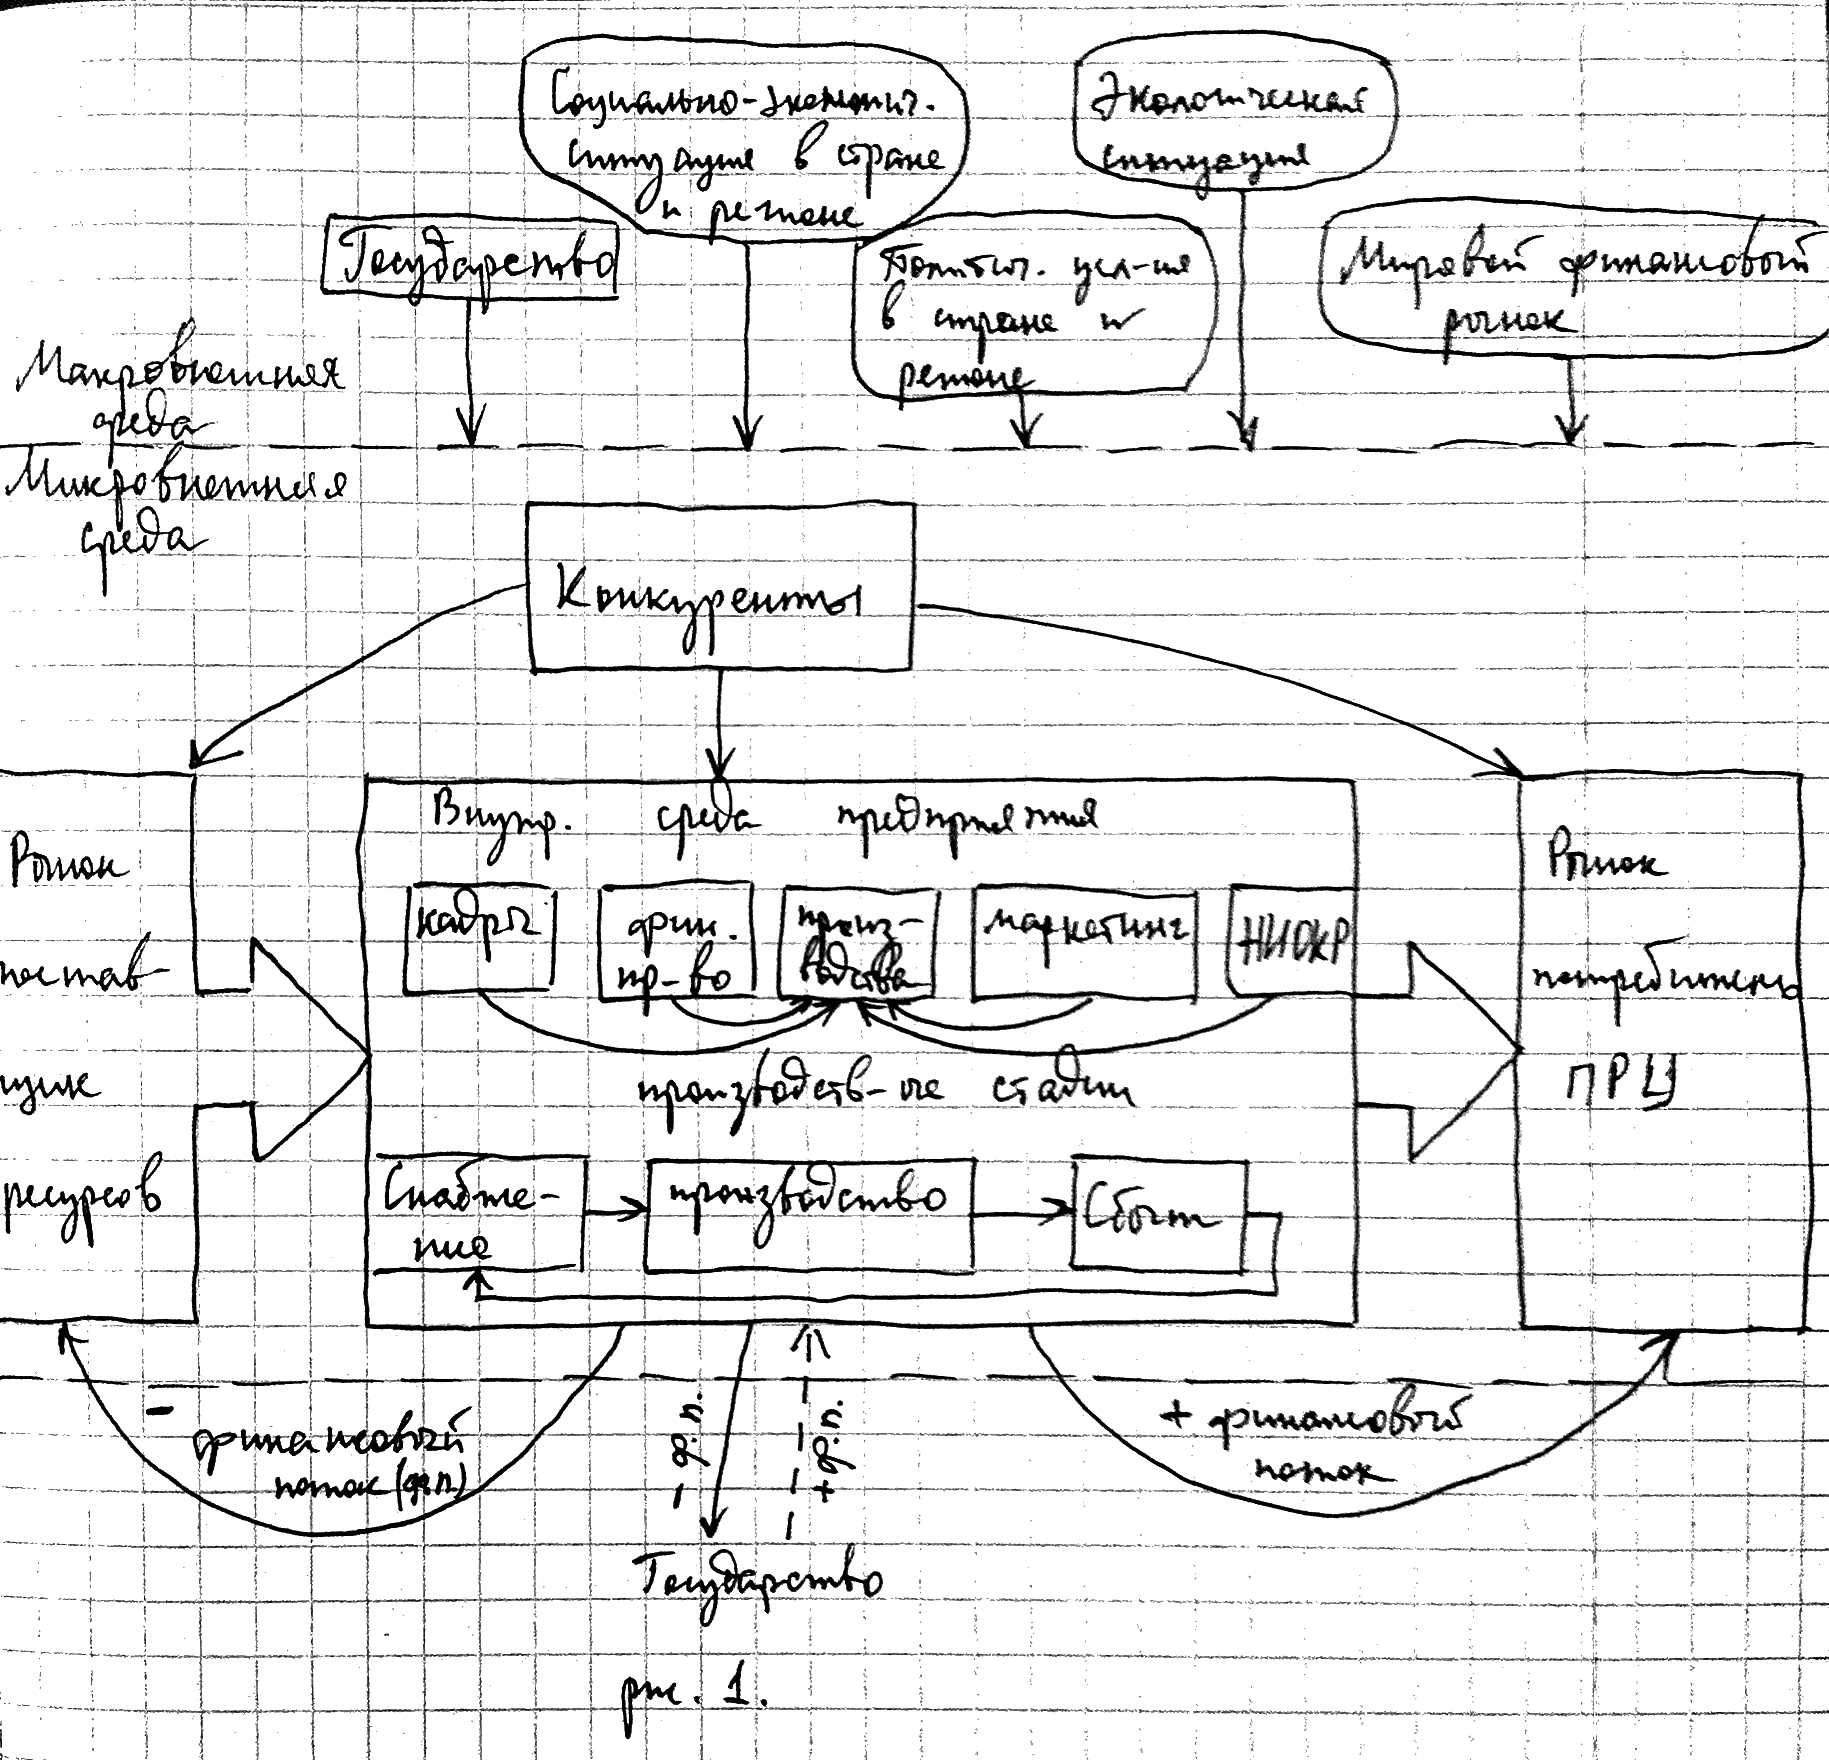 Социально-экономич.
ситуация в стране
и регионе
Экологическая
ситуация
Государство
Политич. усл-ия
в стране и
регионе
Мировой финансовый
рынок
Макровнешняя
среда
Микровнешняя
среда
Конкуренты
Рынок
постав-
щик
ресурсов
Внутр. среда предприятия
кадры
фин.
пр-во
произ-
водство
маркетинг
НИОКР
производств-ые стадии
Снабже-
ние
производство
Сбыт
Рынок
потребитель
ПРЦ
- финансовый
поток (ф.п.)
- ф.п.
+ ф.п.
+ финансовый
поток
Государство
рис. 1.